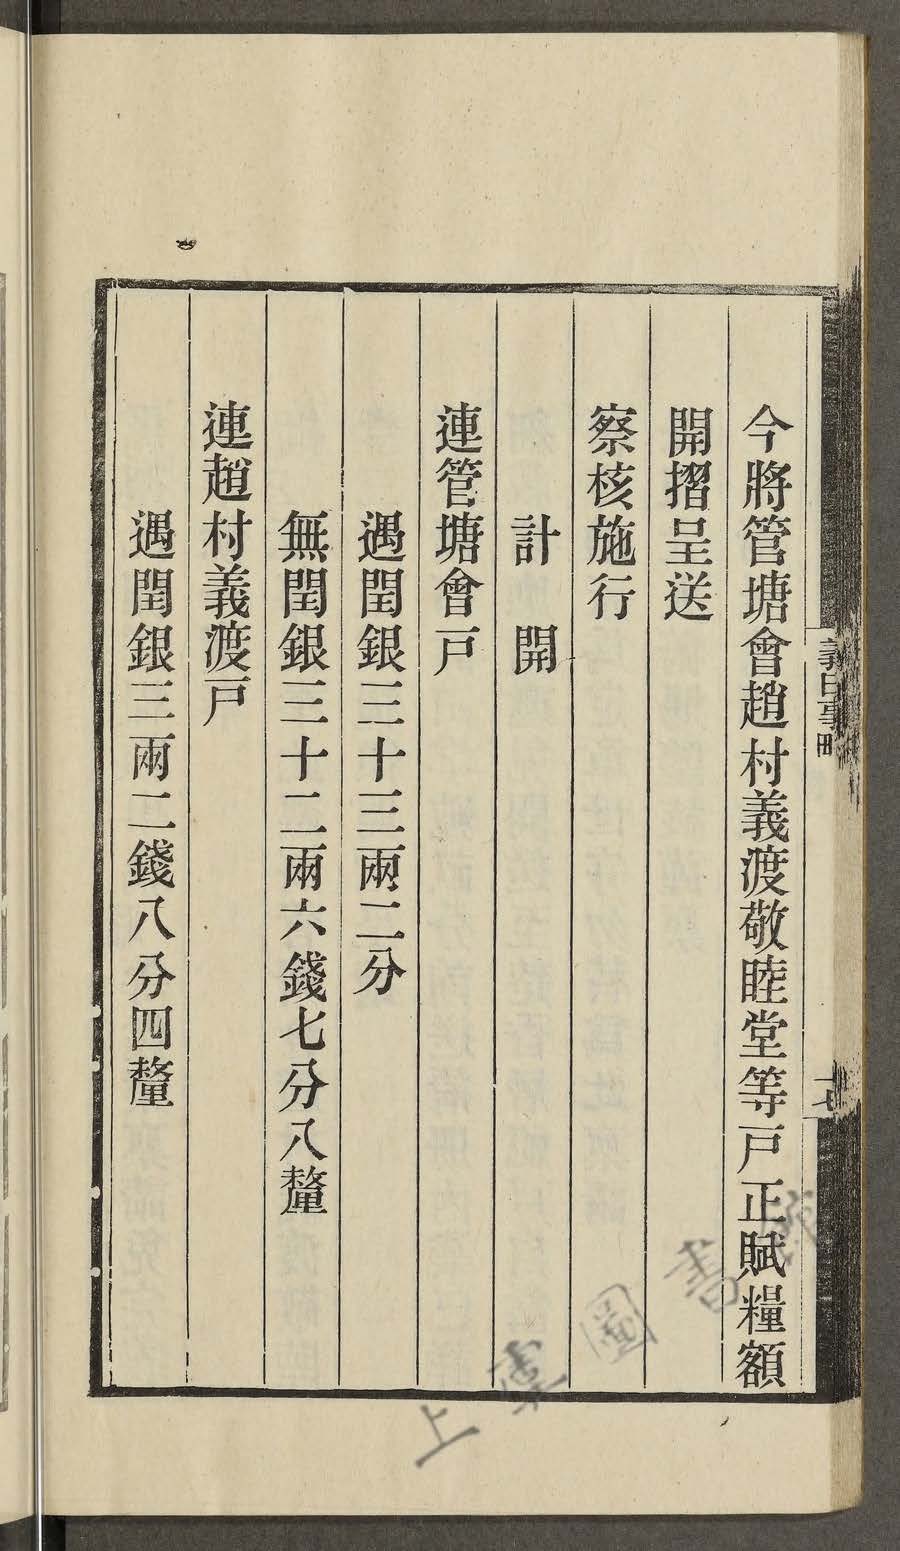 今將管塘會趙村義渡敬睦堂等戸正賦糧額
開摺呈送
察核施行
計開
連管塘會戸
遇閏銀三十三兩二分
無閏銀三十二兩六錢七分八釐
連趙村義渡戸
遇閏銀三兩二錢八分四釐
上虞圖書館